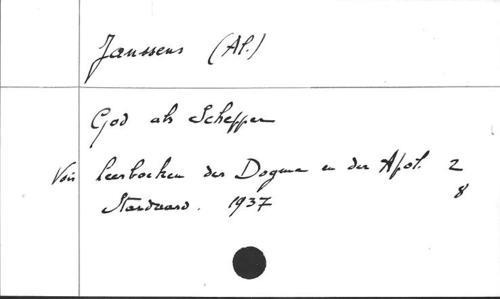 Janssens (Al.)
God als Schepper
Voir leerboeken der Dogma en der Apol. 2
Standaard. 1937 8